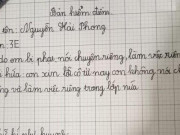 Bản kiểm điểm
tên: Nguyễn Hải Phong
3E
do em bị phạt nói chuyện riêng, làm việc riên
hứa. em xin lỗi cô từ nay em không nói ch
và làm việc riêng trong lớp nữa